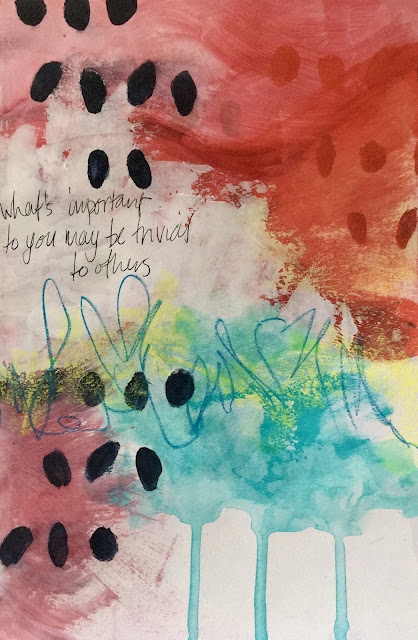 what's important
to you may be trivial
to others